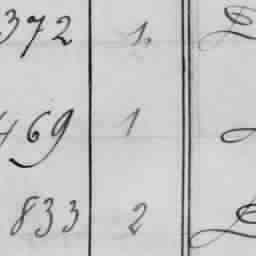 372 1.
469 1
833 2